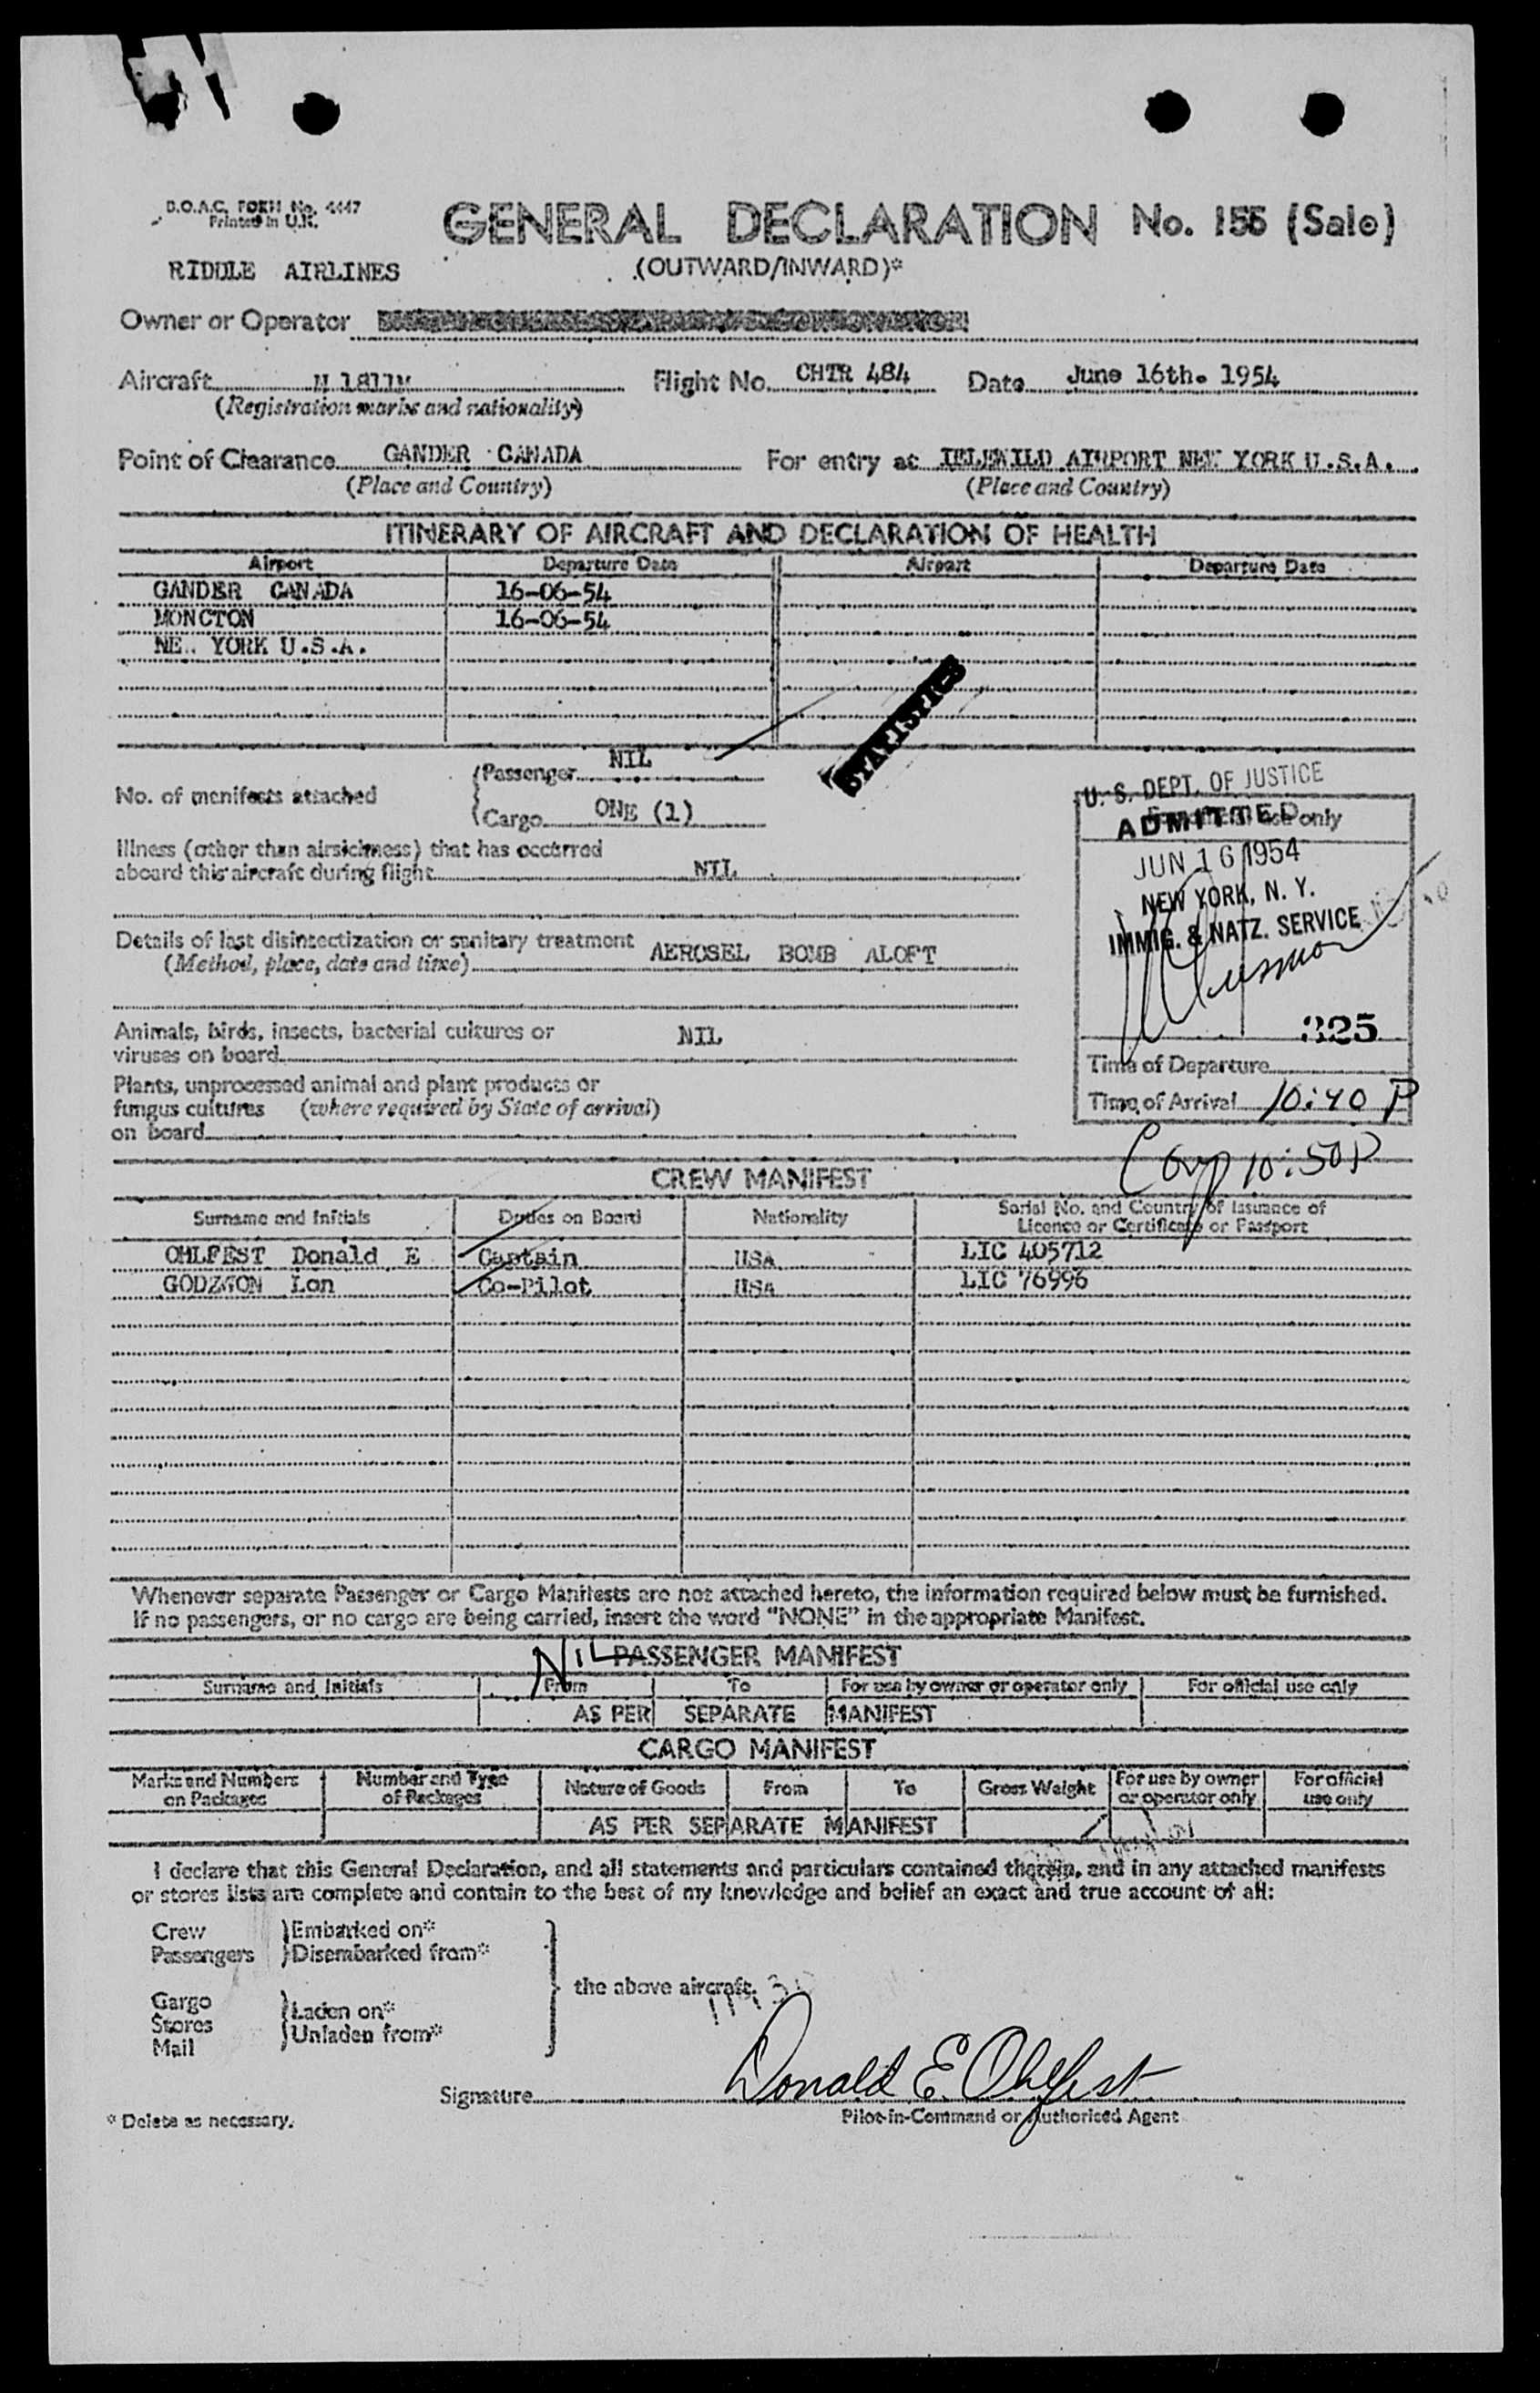 B.O.A.C. FORM No. 4447
Printed in U.K.
GENERAL DECLARATION No. 155 (Sale)
(OUTWARD/INWARD)*
RIDDLE AIRLINES
Owner or Operator
Aircraft N 1811M Flight No. CHTR 484 Date June 16th. 1954
(Registration marks and nationality)
Point of Clearance GANDER CANADA For entry at IDLEWILD AIRPORT NEW YORK U.S.A.
(Place and Country) (Place and Country)
ITINERARY OF AIRCRAFT AND DECLARATION OF HEALTH
Airport Departure Date Airport Departure Date
GANDER CANADA 16-06-54
MONCTON 16-06-54
NEW YORK U.S.A.
STATISTICS
No. of manifests attached
Passenger NIL
Cargo ONE (1)
Illness (other than airsickness) that has occurred
aboard this aircraft during flight NIL
Details of last disinsectization or sanitary treatment
(Method, place, date and time) AEROSEL BOMB ALOFT
Animals, birds, insects, bacterial cultures or
viruses on board NIL
Plants, unprocessed animal and plant products or
fungus cultures (where required by State of arrival)
on board
U. S. DEPT. OF JUSTICE
ADMITTED
use only
JUN 16 1954
NEW YORK, N. Y.
IMMIG. & NATZ. SERVICE
325
Time of Departure
Time of Arrival 10:40 P
10:50P
CREW MANIFEST
Surname and Initials Duties on Board Nationality Serial No. and Country of Issuance of
Licence or Certificate or Passport
OHLFEST Donald E Captain USA LIC 405712
GODZWON Lon Co-Pilot USA LIC 76996
Whenever separate Passenger or Cargo Manifests are not attached hereto, the information required below must be furnished.
If no passengers, or no cargo are being carried, insert the word "NONE" in the appropriate Manifest.
NIL PASSENGER MANIFEST
Surname and Initials From To For use by owner or operator only For official use only
AS PER SEPARATE MANIFEST
CARGO MANIFEST
Marks and Numbers on Packages Number and Type of Packages Nature of Goods From To Gross Weight For use by owner or operator only For official use only
AS PER SEPARATE MANIFEST
I declare that this General Declaration, and all statements and particulars contained therein, and in any attached manifests
or stores lists are complete and contain to the best of my knowledge and belief an exact and true account of all:
Crew Embarked on*
Passengers Disembarked from*
the above aircraft.
Cargo
Stores Laden on*
Mail Unladen from*
Signature Donald E. Ohlfest
Pilot-in-Command or Authorised Agent
* Delete as necessary.